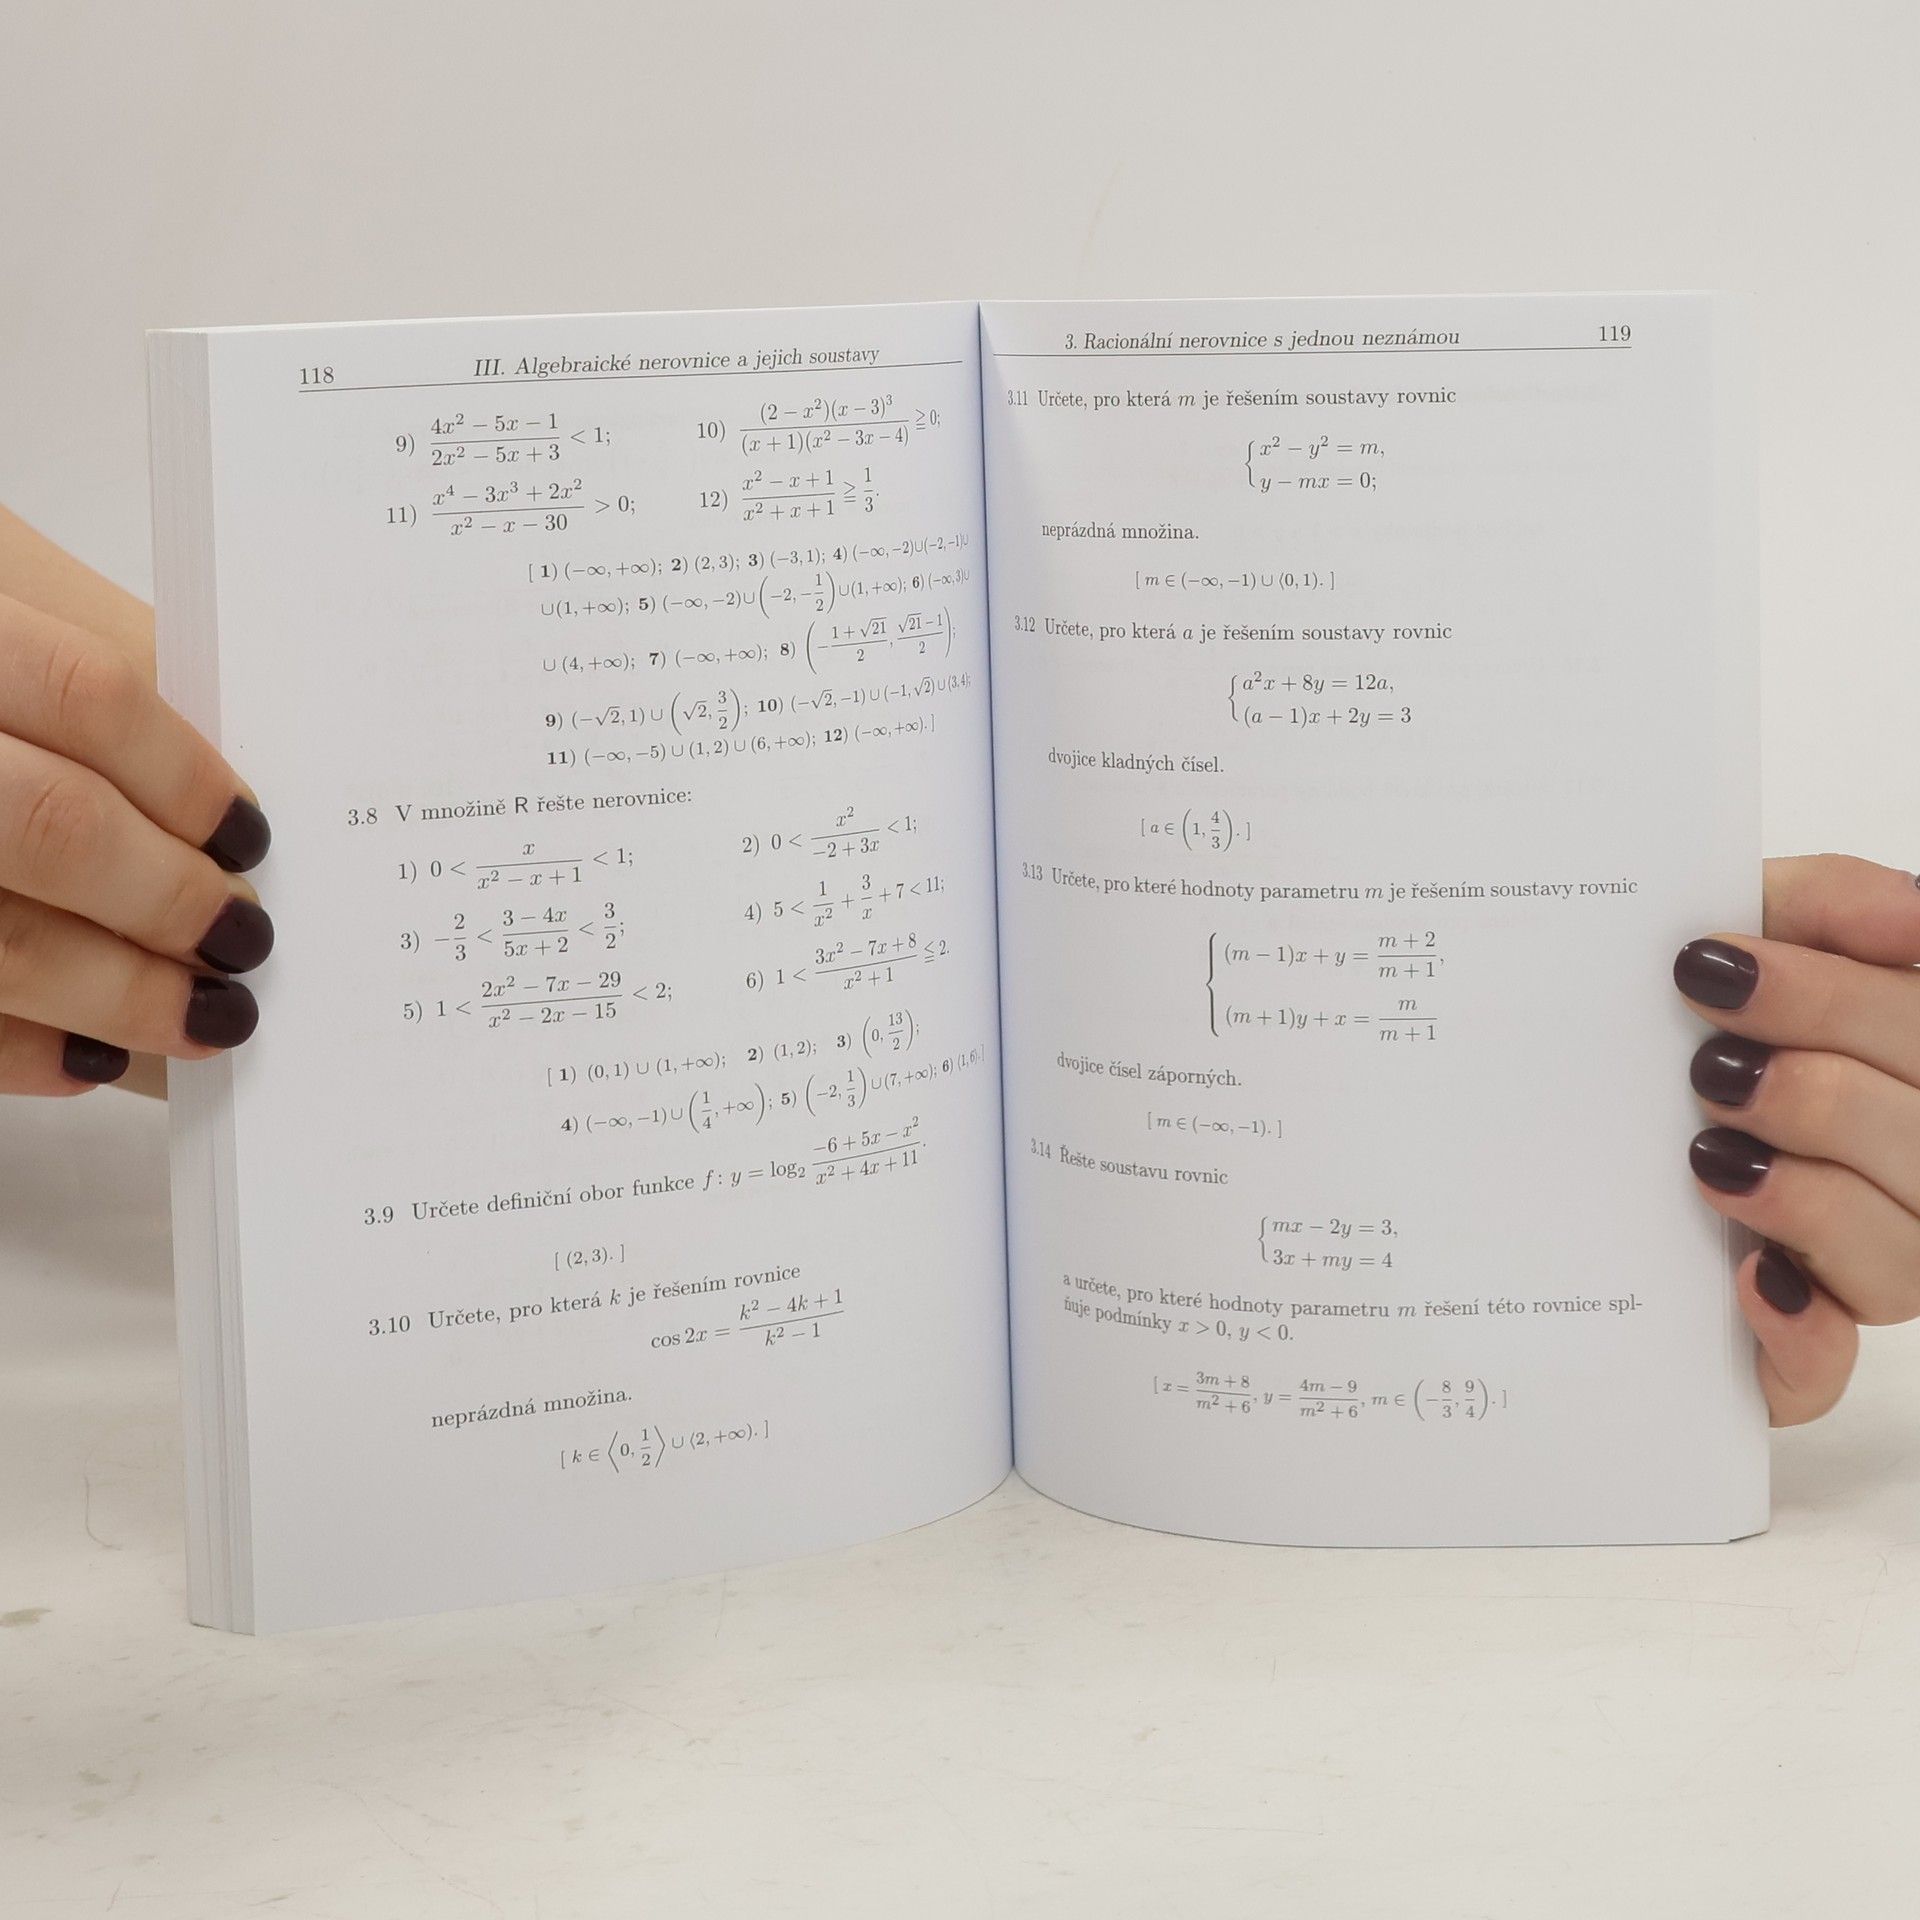 118 III. Algebraické nerovnice a jejich soustavy
9) \frac{4x^2 - 5x - 1}{2x^2 - 5x + 3} < 1; 10) \frac{(2 - x^2)(x - 3)^3}{(x + 1)(x^2 - 3x - 4)} ≧ 0;
11) \frac{x^4 - 3x^3 + 2x^2}{x^2 - x - 30} > 0; 12) \frac{x^2 - x + 1}{x^2 + x + 1} ≧ \frac{1}{3}.
[ 1) (−∞, +∞); 2) (2, 3); 3) (−3, 1); 4) (−∞, −2)∪(−2, −1)∪
∪(1, +∞); 5) (−∞, −2)∪(−2, −\frac{1}{2})∪(1, +∞); 6) (−∞, 3)∪
∪ (4, +∞); 7) (−∞, +∞); 8) (−\frac{1 + √21}{2}, \frac{√21 − 1}{2});
9) (−√2, 1) ∪ (√2, \frac{3}{2}); 10) (−√2, −1) ∪ (−1, √2) ∪ (3, 4);
11) (−∞, −5) ∪ (1, 2) ∪ (6, +∞); 12) (−∞, +∞). ]
3.8 V množině R řešte nerovnice:
1) 0 < \frac{x}{x^2 - x + 1} < 1; 2) 0 < \frac{x^2}{-2 + 3x} < 1;
3) −\frac{2}{3} < \frac{3 - 4x}{5x + 2} < \frac{3}{2}; 4) 5 < \frac{1}{x^2} + \frac{3}{x} + 7 < 11;
5) 1 < \frac{2x^2 - 7x - 29}{x^2 - 2x - 15} < 2; 6) 1 < \frac{3x^2 - 7x + 8}{x^2 + 1} ≦ 2.
[ 1) (0, 1) ∪ (1, +∞); 2) (1, 2); 3) (0, \frac{13}{2});
4) (−∞, −1)∪(\frac{1}{4}, +∞); 5) (−2, \frac{1}{3})∪(7, +∞); 6) (1, 6). ]
3.9 Určete definiční obor funkce f : y = log_2 \frac{-6 + 5x - x^2}{x^2 + 4x + 11}.
[ (2, 3). ]
3.10 Určete, pro která k je řešením rovnice
cos 2x = \frac{k^2 - 4k + 1}{k^2 - 1}
neprázdná množina.
[ k ∈ ⟨0, \frac{1}{2}⟩ ∪ ⟨2, +∞). ]
3. Racionální nerovnice s jednou neznámou 119
3.11 Určete, pro která m je řešením soustavy rovnic
{ x^2 − y^2 = m,
y − mx = 0;
neprázdná množina.
[ m ∈ (−∞, −1) ∪ ⟨0, 1). ]
3.12 Určete, pro která a je řešením soustavy rovnic
{ a^2x + 8y = 12a,
(a − 1)x + 2y = 3
dvojice kladných čísel.
[ a ∈ (1, \frac{4}{3}). ]
3.13 Určete, pro které hodnoty parametru m je řešením soustavy rovnic
{ (m − 1)x + y = \frac{m + 2}{m + 1},
(m + 1)y + x = \frac{m}{m + 1}
dvojice čísel záporných.
[ m ∈ (−∞, −1). ]
3.14 Řešte soustavu rovnic
{ mx − 2y = 3,
3x + my = 4
a určete, pro které hodnoty parametru m řešení této rovnice spl-
ňuje podmínky x > 0, y < 0.
[ x = \frac{3m + 8}{m^2 + 6}, y = \frac{4m - 9}{m^2 + 6}, m ∈ (−\frac{8}{3}, \frac{9}{4}). ]